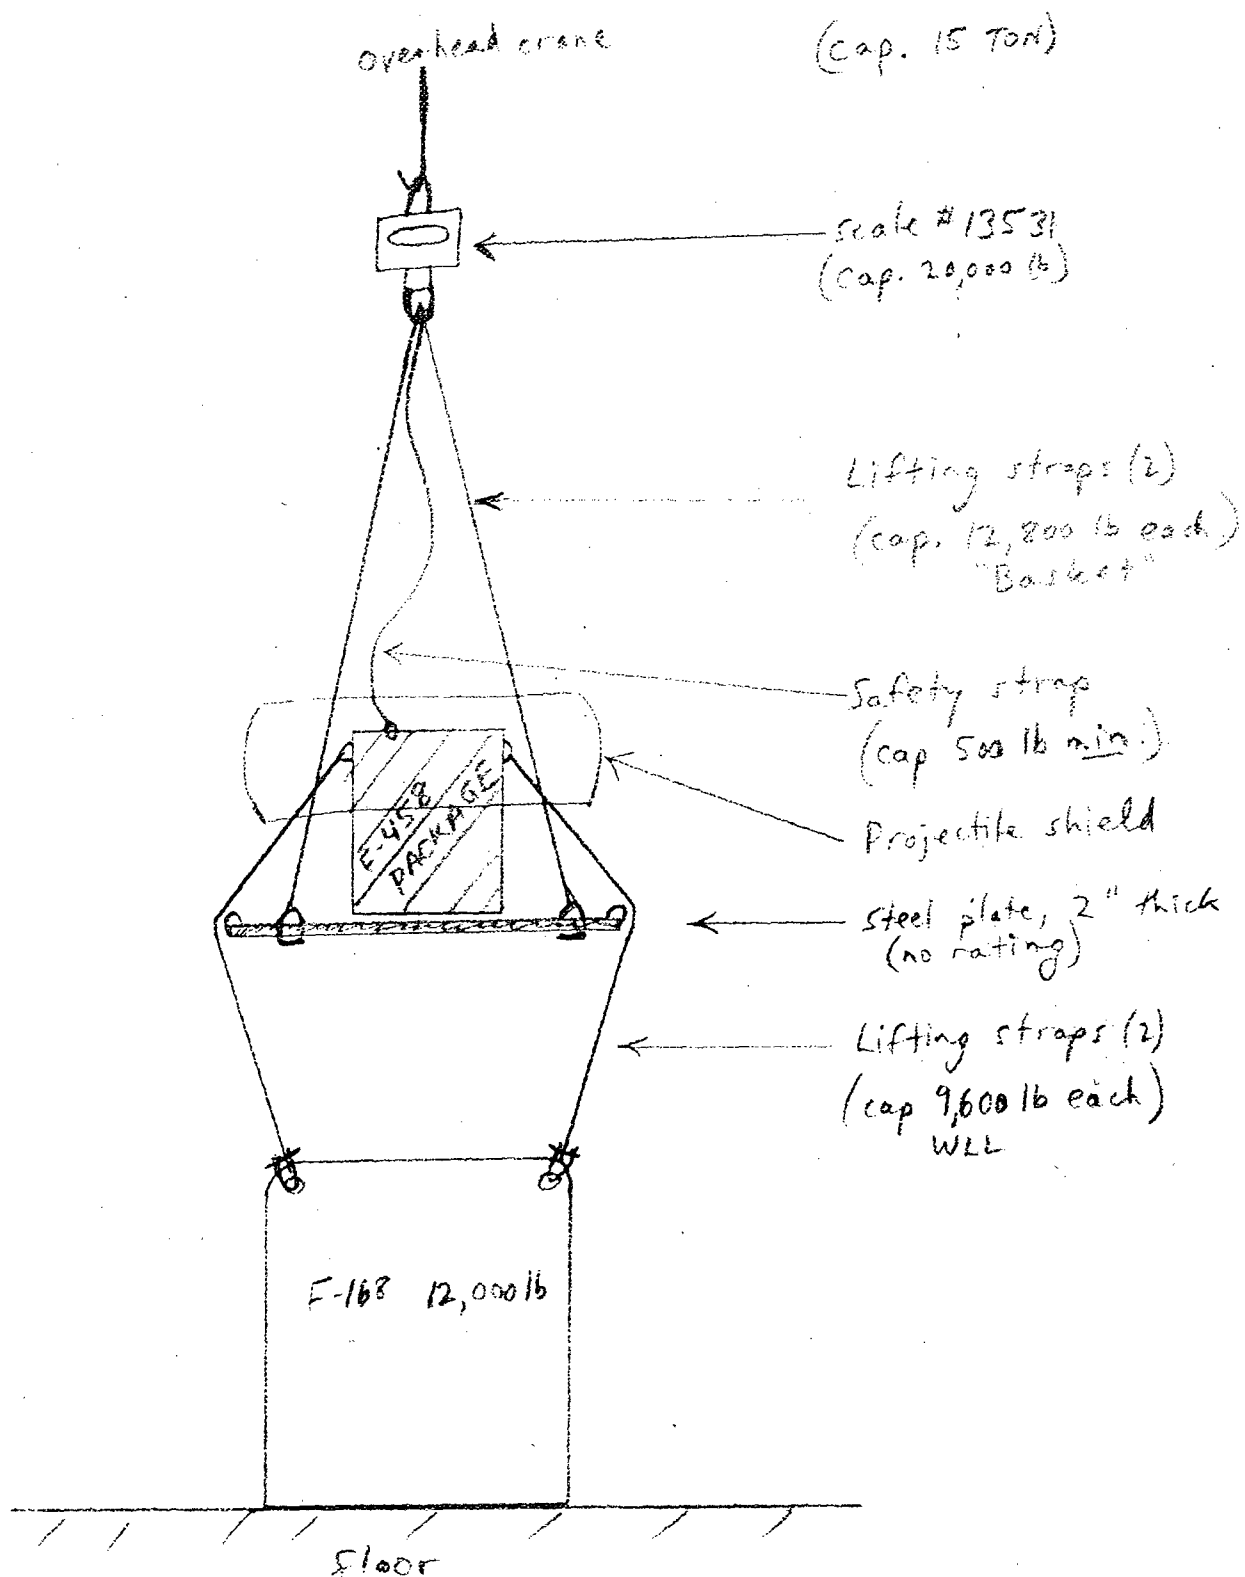 overhead crane
(cap. 15 TON)
scale #13531
(cap. 20,000 lb)
Lifting straps (2)
(cap. 12,800 lb each)
"Basket"
Safety strap
(cap 500 lb min.)
Projectile shield
F-458
PACKAGE
steel plate, 2" thick
(no rating)
Lifting straps (2)
(cap 9,600 lb each)
WLL
F-168 12,000 lb
floor